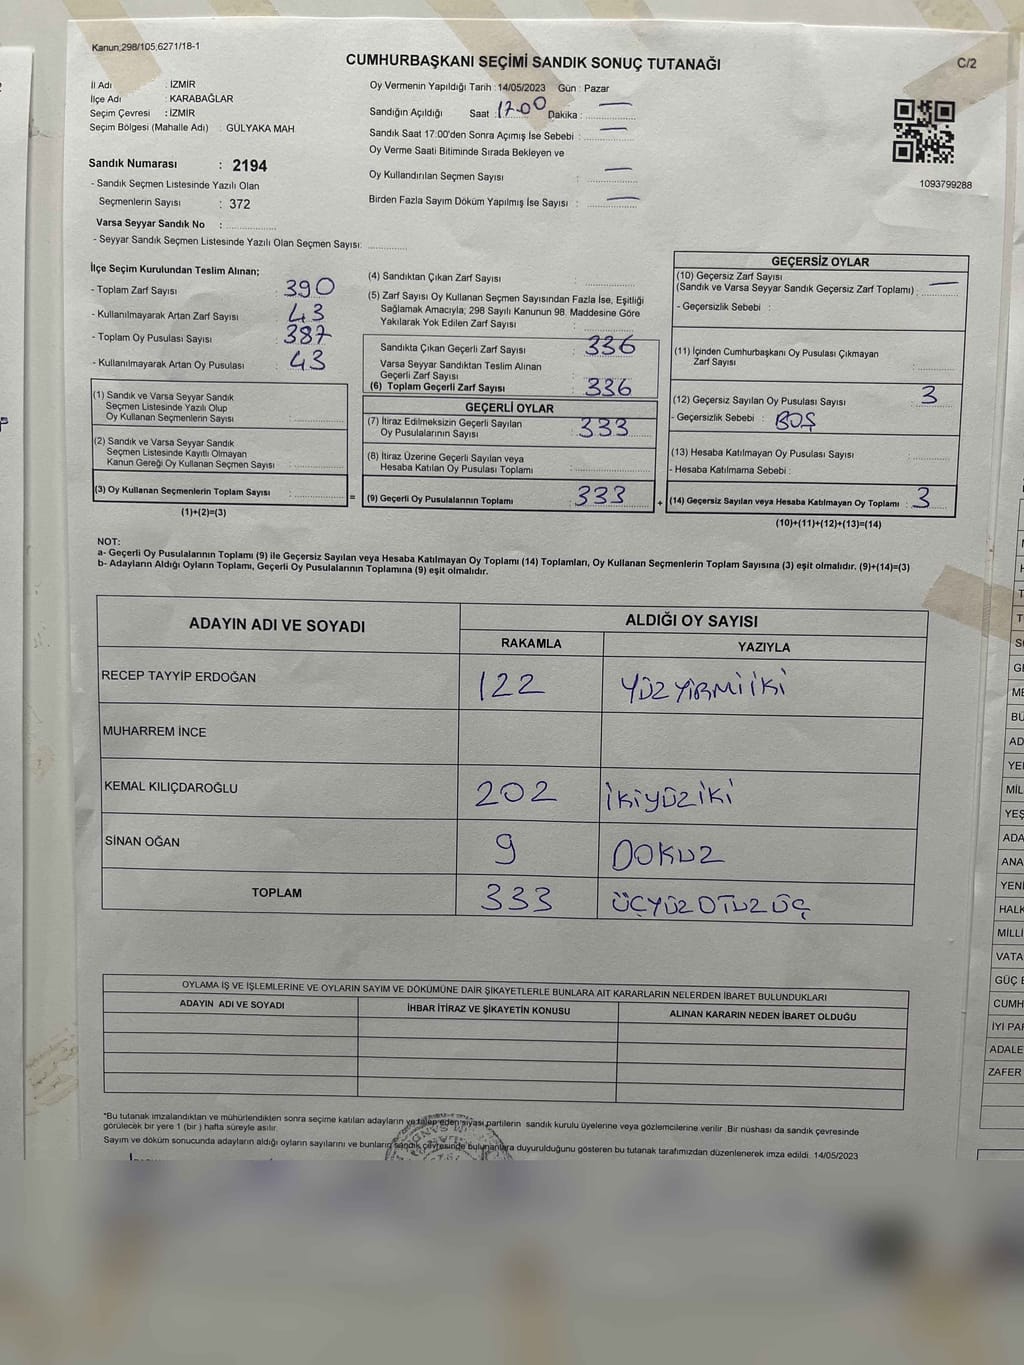 Kanun;298/105;6271/18-1
CUMHURBAŞKANI SEÇİMİ SANDIK SONUÇ TUTANAĞI
C/2
İl Adı : İZMİR
İlçe Adı : KARABAĞLAR
Seçim Çevresi : İZMİR
Seçim Bölgesi (Mahalle Adı) : GÜLYAKA MAH
Oy Vermenin Yapıldığı Tarih : 14/05/2023 Gün : Pazar
Sandığın Açıldığı Saat : 17.00 Dakika : —
Sandık Saat 17:00'den Sonra Açımış İse Sebebi : —
Oy Verme Saati Bitiminde Sırada Bekleyen ve
Oy Kullandırılan Seçmen Sayısı : —
Birden Fazla Sayım Döküm Yapılmış İse Sayısı : —
1093799288
Sandık Numarası : 2194
- Sandık Seçmen Listesinde Yazılı Olan
Seçmenlerin Sayısı : 372
Varsa Seyyar Sandık No :
- Seyyar Sandık Seçmen Listesinde Yazılı Olan Seçmen Sayısı:
İlçe Seçim Kurulundan Teslim Alınan;
- Toplam Zarf Sayısı : 390
- Kullanılmayarak Artan Zarf Sayısı : 43
- Toplam Oy Pusulası Sayısı : 387
- Kullanılmayarak Artan Oy Pusulası : 43
(1) Sandık ve Varsa Seyyar Sandık
Seçmen Listesinde Yazılı Olup
Oy Kullanan Seçmenlerin Sayısı :
(2) Sandık ve Varsa Seyyar Sandık
Seçmen Listesinde Kayıtlı Olmayan
Kanun Gereği Oy Kullanan Seçmen Sayısı :
(3) Oy Kullanan Seçmenlerin Toplam Sayısı :
(1)+(2)=(3)
(4) Sandıktan Çıkan Zarf Sayısı :
(5) Zarf Sayısı Oy Kullanan Seçmen Sayısından Fazla İse, Eşitliği
Sağlamak Amacıyla; 298 Sayılı Kanunun 98. Maddesine Göre
Yakılarak Yok Edilen Zarf Sayısı :
Sandıkta Çıkan Geçerli Zarf Sayısı : 336
Varsa Seyyar Sandıktan Teslim Alınan
Geçerli Zarf Sayısı :
(6) Toplam Geçerli Zarf Sayısı : 336
GEÇERLİ OYLAR
(7) İtiraz Edilmeksizin Geçerli Sayılan
Oy Pusulalarının Sayısı : 333
(8) İtiraz Üzerine Geçerli Sayılan veya
Hesaba Katılan Oy Pusulası Toplamı :
= (9) Geçerli Oy Pusulalarının Toplamı : 333
GEÇERSİZ OYLAR
(10) Geçersiz Zarf Sayısı
(Sandık ve Varsa Seyyar Sandık Geçersiz Zarf Toplamı) : —
- Geçersizlik Sebebi :
(11) İçinden Cumhurbaşkanı Oy Pusulası Çıkmayan
Zarf Sayısı :
(12) Geçersiz Sayılan Oy Pusulası Sayısı : 3
- Geçersizlik Sebebi : BOŞ
(13) Hesaba Katılmayan Oy Pusulası Sayısı :
- Hesaba Katılmama Sebebi :
+ (14) Geçersiz Sayılan veya Hesaba Katılmayan Oy Toplamı : 3
(10)+(11)+(12)+(13)=(14)
NOT:
a- Geçerli Oy Pusulalarının Toplamı (9) ile Geçersiz Sayılan veya Hesaba Katılmayan Oy Toplamı (14) Toplamları, Oy Kullanan Seçmenlerin Toplam Sayısına (3) eşit olmalıdır. (9)+(14)=(3)
b- Adayların Aldığı Oyların Toplamı, Geçerli Oy Pusulalarının Toplamına (9) eşit olmalıdır.
ADAYIN ADI VE SOYADI ALDIĞI OY SAYISI
RAKAMLA YAZIYLA
RECEP TAYYİP ERDOĞAN 122 YÜZ YİRMİ İKİ
MUHARREM İNCE
KEMAL KILIÇDAROĞLU 202 İKİYÜZ İKİ
SİNAN OĞAN 9 DOKUZ
TOPLAM 333 ÜÇYÜZ OTUZ ÜÇ
OYLAMA İŞ VE İŞLEMLERİNE VE OYLARIN SAYIM VE DÖKÜMÜNE DAİR ŞİKAYETLERLE BUNLARA AİT KARARLARIN NELERDEN İBARET BULUNDUKLARI
ADAYIN ADI VE SOYADI İHBAR İTİRAZ VE ŞİKAYETİN KONUSU ALINAN KARARIN NEDEN İBARET OLDUĞU
*Bu tutanak imzalandıktan ve mühürlendikten sonra seçime katılan adayların ve talep eden siyasi partilerin sandık kurulu üyelerine veya gözlemcilerine verilir .Bir nüshası da sandık çevresinde
görülecek bir yere 1 (bir ) hafta süreyle asılır.
Sayım ve döküm sonucunda adayların aldığı oyların sayılarını ve bunların sandık çevresinde bulunanlara duyurulduğunu gösteren bu tutanak tarafımızdan düzenlenerek imza edildi. 14/05/2023
AD
YEŞ
ADA
ANA
YENİ
HALK
MİLLİ
VATA
GÜÇ
CUMH
İYİ PAR
ADALE
ZAFER